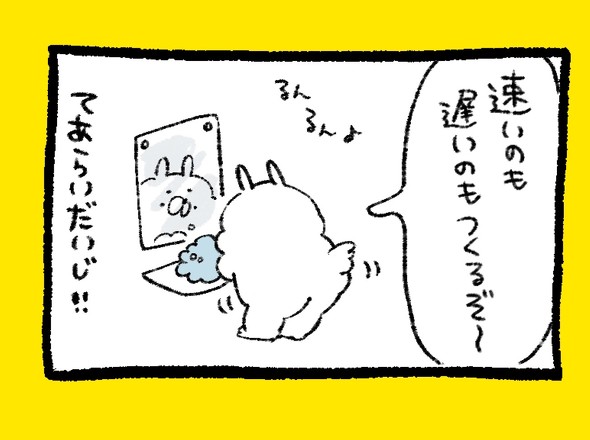 速いのも
遅いのもつくるぞ〜
るん
るんよ
てあらいだいじ!!